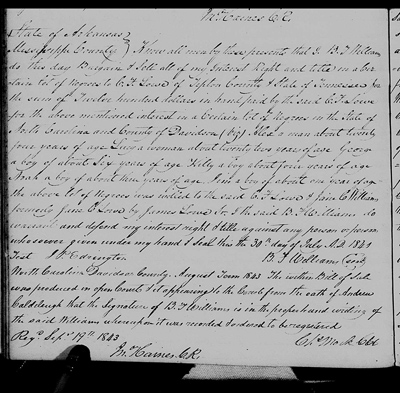 Jno. Haines C.R.
State of Arkansas
Mississippi County } Know all men by these presents that I B. F. Williams
do this day Bargain & Sell all of my Interest Right and title in a cer
tain lot of negroes to C. F. Lowe of Tipton County & State of Tennessee for
the sum of Twelve hundred dollars in hand paid by the said C. F. Lowe
for the above mentioned interest in a Certain lot of Negroes in the State of
North Carolina and County of Davidson (viz) a man about twenty
four years of age a woman about twenty two years of age George
a boy of about Six years of age a boy about four years of age
Noah a boy of about three years of age a boy of about one year of age
the above lot of Negroes was willed to the said C. F. Lowe & Jane C. Williams
formerly Jane C. Lowe by James Lowe I the said B. F. Williams do
warrant and defend my interest right & title against any person or persons
whosoever given under my hand & Seal this the 30th day of July A.D. 1841
Test B. F. Williams (Seal)
North Carolina Davidson County August Term 1843 The within Bill of Sale
was produced in open Court & it appearing to the Court from the oath of Andrew
that the Signature of B. F. Williams is in the proper hand writing of
the said Williams whereupon it was recorded & ordered to be registered
Regd. Sept. 19th 1843
Jno. Haines C.R.